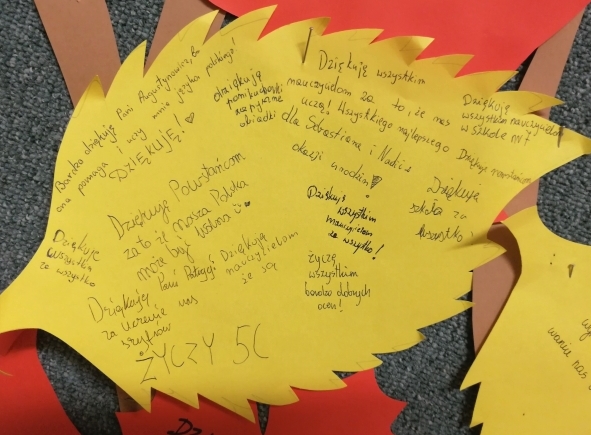 Bardzo dziękuję Pani Augustynowicz, bo
ona pomaga i uczy mnie języka polskiego!
DZIĘKUJĘ!
dziękują
pani kucharski
za pyszne
obiadki
Dziękuję wszystkim
nauczycielom za to, że nas
uczą! Wszystkiego najlepszego
dla Sebastiana i Nadii z
okazji urodzin!
Dziękuję
wszystkim nauczycielom
w szkole nr 7
Dziękuję Powstańcom
za to iż nasza Polska
może być wolna
Dziękuję powstańcom
Dziękuję
szkoła za
wszystko
Dziękuję
wszystkim
nauczycielom
za wszystko!
Dziękuje
wszystkim
za wszystko
Dziękują
nauczycielom
że są
Dziękują Pani
za uczenie nas
życzę
wszystkim
bardzo dobrych
ocen!
ŻYCZY 5C
wania nas